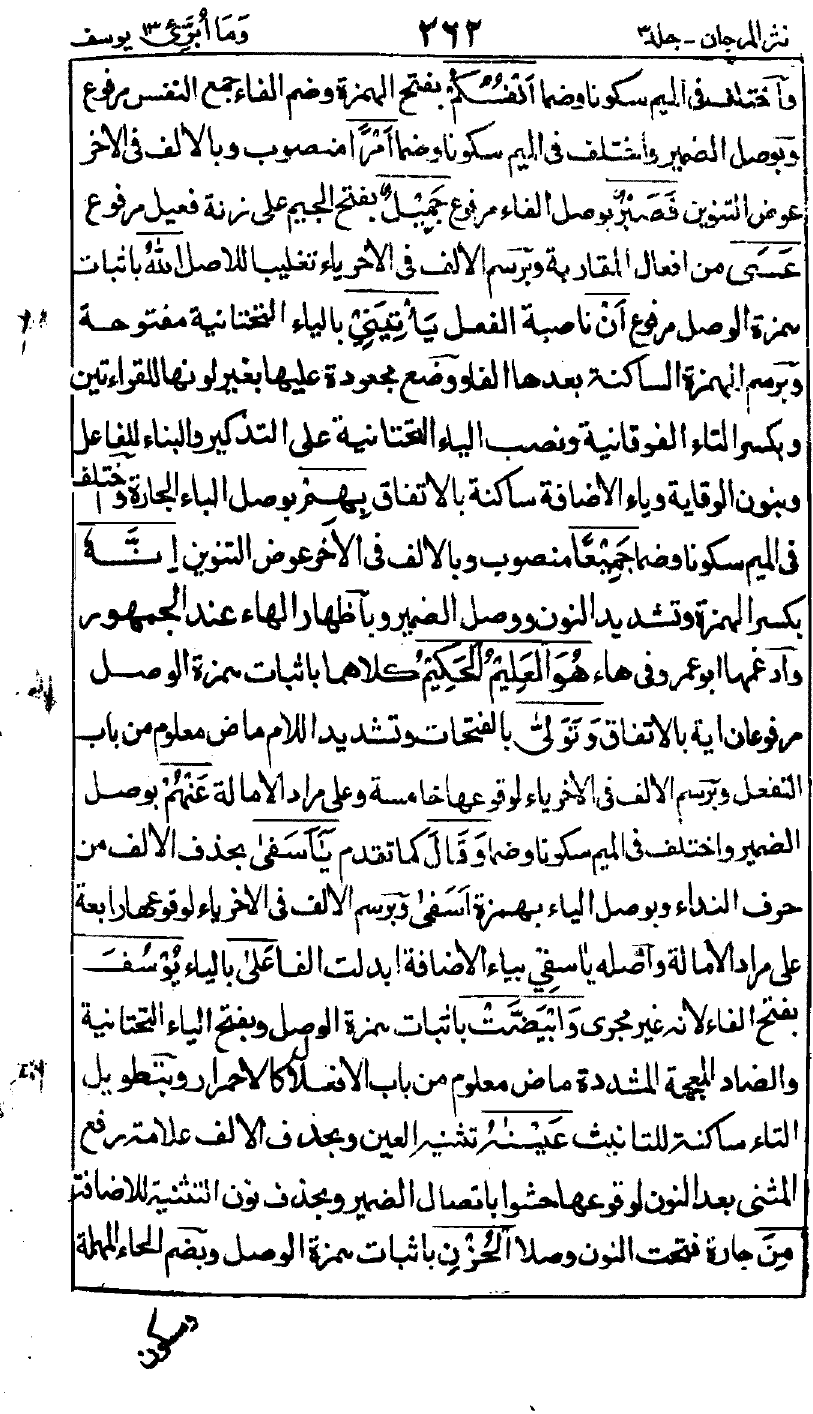 نثر المرجان - جلد ٣ ٣٦٢ وَمَا أُبَرِّئُ ١٣ يوسف
وآختلف فى الميم سكونا وضما اَنْفُسُكُمْ بفتح الهمزة وضم الفاء جمع النفس مرفوع
وبوصل الضمير واختلف فى الميم سكونا وضما اَمْرًا منصوب وبالالف فى الاخر
عوض التنوين فَصَبْرٌ بوصل الفاء مرفوع جَمِيْلٌ بفتح الجيم على زنة فعيل مرفوع
عَسَى من افعال المقاربة وبرسم الالف فى الاخر ياء تغليبا للاصل اللهُ باثبات
همزة الوصل مرفوع اَنْ ناصبة الفعل يَأْتِيَنِيْ بالياء التحتانية مفتوحة
وبرسم الهمزة الساكنة بعدها الفا ووضع مجعودة عليها بغير لونها للقراءتين
وبكسر التاء الفوقانية ونصب الياء التحتانية على التذكير والبناء للفاعل
وبنون الوقاية وياء الاضافة ساكنة بالاتفاق بِهِمْ بوصل الباء الجارة واختلف
فى الميم سكونا وضما جَمِيْعًا منصوب وبالالف فى الآخر عوض التنوين اِنَّهُ
بكسر الهمزة وتشديد النون ووصل الضمير وبآظهار الهاء عند الجمهور
وآدغمها ابو عمرو فى هاء هُوَ الْعَلِيْمُ الْحَكِيْمُ كلاهما باثبات همزة الوصل
مرفوعان اية بالاتفاق وَتَوَلّٰى بالفتحات وتشديد اللام ماض معلوم من باب
التفعل وبرسم الالف فى الاخر ياء لوقوعها خامسة وعلى مراد الامالة عَنْهُمْ بوصل
الضمير واختلف فى الميم سكونا وضما وَقَالَ كما تقدم يٰٓاَسَفٰى بحذف الالف من
حرف النداء وبوصل الياء بهمزة اَسَفٰى وبرسم الالف فى الاخر ياء لوقوعها رابعة
على مراد الامالة وآصله يٰاسفِيْ بياء الاضافة ابدلت الفا عَلٰى بالياء يُوْسُفَ
بفتح الفاء لانه غير مجرى وَابْيَضَّتْ باثبات همزة الوصل وبفتح الياء التحتانية
والضاد المعجمة المشددة ماض معلوم من باب الافعلال كالاحمرار وبتطويل
التاء ساكنة للتانيث عَيْنٰهُ تثنية العين وبحذف الالف علامة رفع
المثنى بعد النون لوقوعها حشوا باتصال الضمير وبحذف نون التثنية للاضافة
مِنَ جارة فتحت النون وصلا الْحُزْنِ باثبات همزة الوصل وبضم الحاء المهملة
وسكون